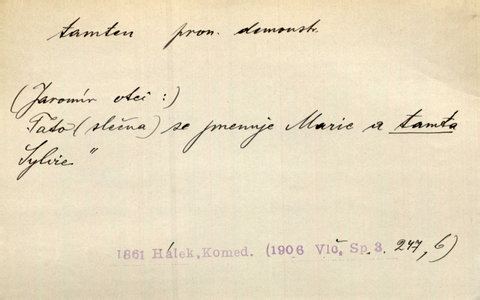 tamten pron. demonstr.
(Jaromír otci :)
Tato (slečna) se jmenuje Marie a tamta
Sylvie"
1861 Hálek, Komed. (1906 Vlč. Sp. 3. 247, 6)